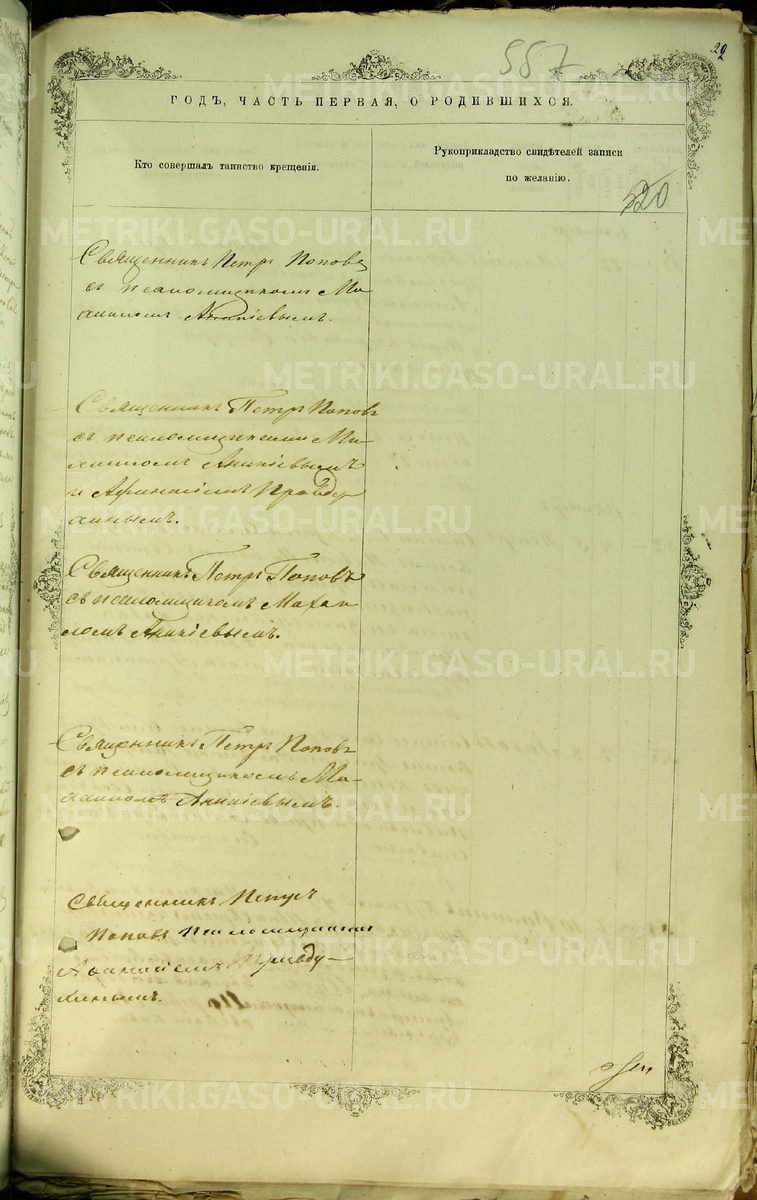 557
22
ГОДЪ, ЧАСТЬ ПЕРВАЯ, О РОДИВШИХСЯ.
Кто совершалъ таинство крещенія.
Рукоприкладство свидѣтелей записи
по желанію.
320
Священникъ Петръ Поповъ
съ псаломщикомъ Ми-
хаиломъ Ананіевымъ.
Священникъ Петръ Поповъ
съ псаломщиками Ми-
хаиломъ Ананіевымъ
и Афанасіемъ Правду-
хинымъ.
Священникъ Петръ Поповъ
съ псаломщикомъ Михаи-
ломъ Ананіевымъ.
Священникъ Петръ Поповъ
съ псаломщикомъ Ми-
хаиломъ Ананіевымъ.
Священникъ Петръ
Поповъ псаломщикомъ
Афанасіемъ Правду-
хинымъ.
METRIKI.GASO-URAL.RU